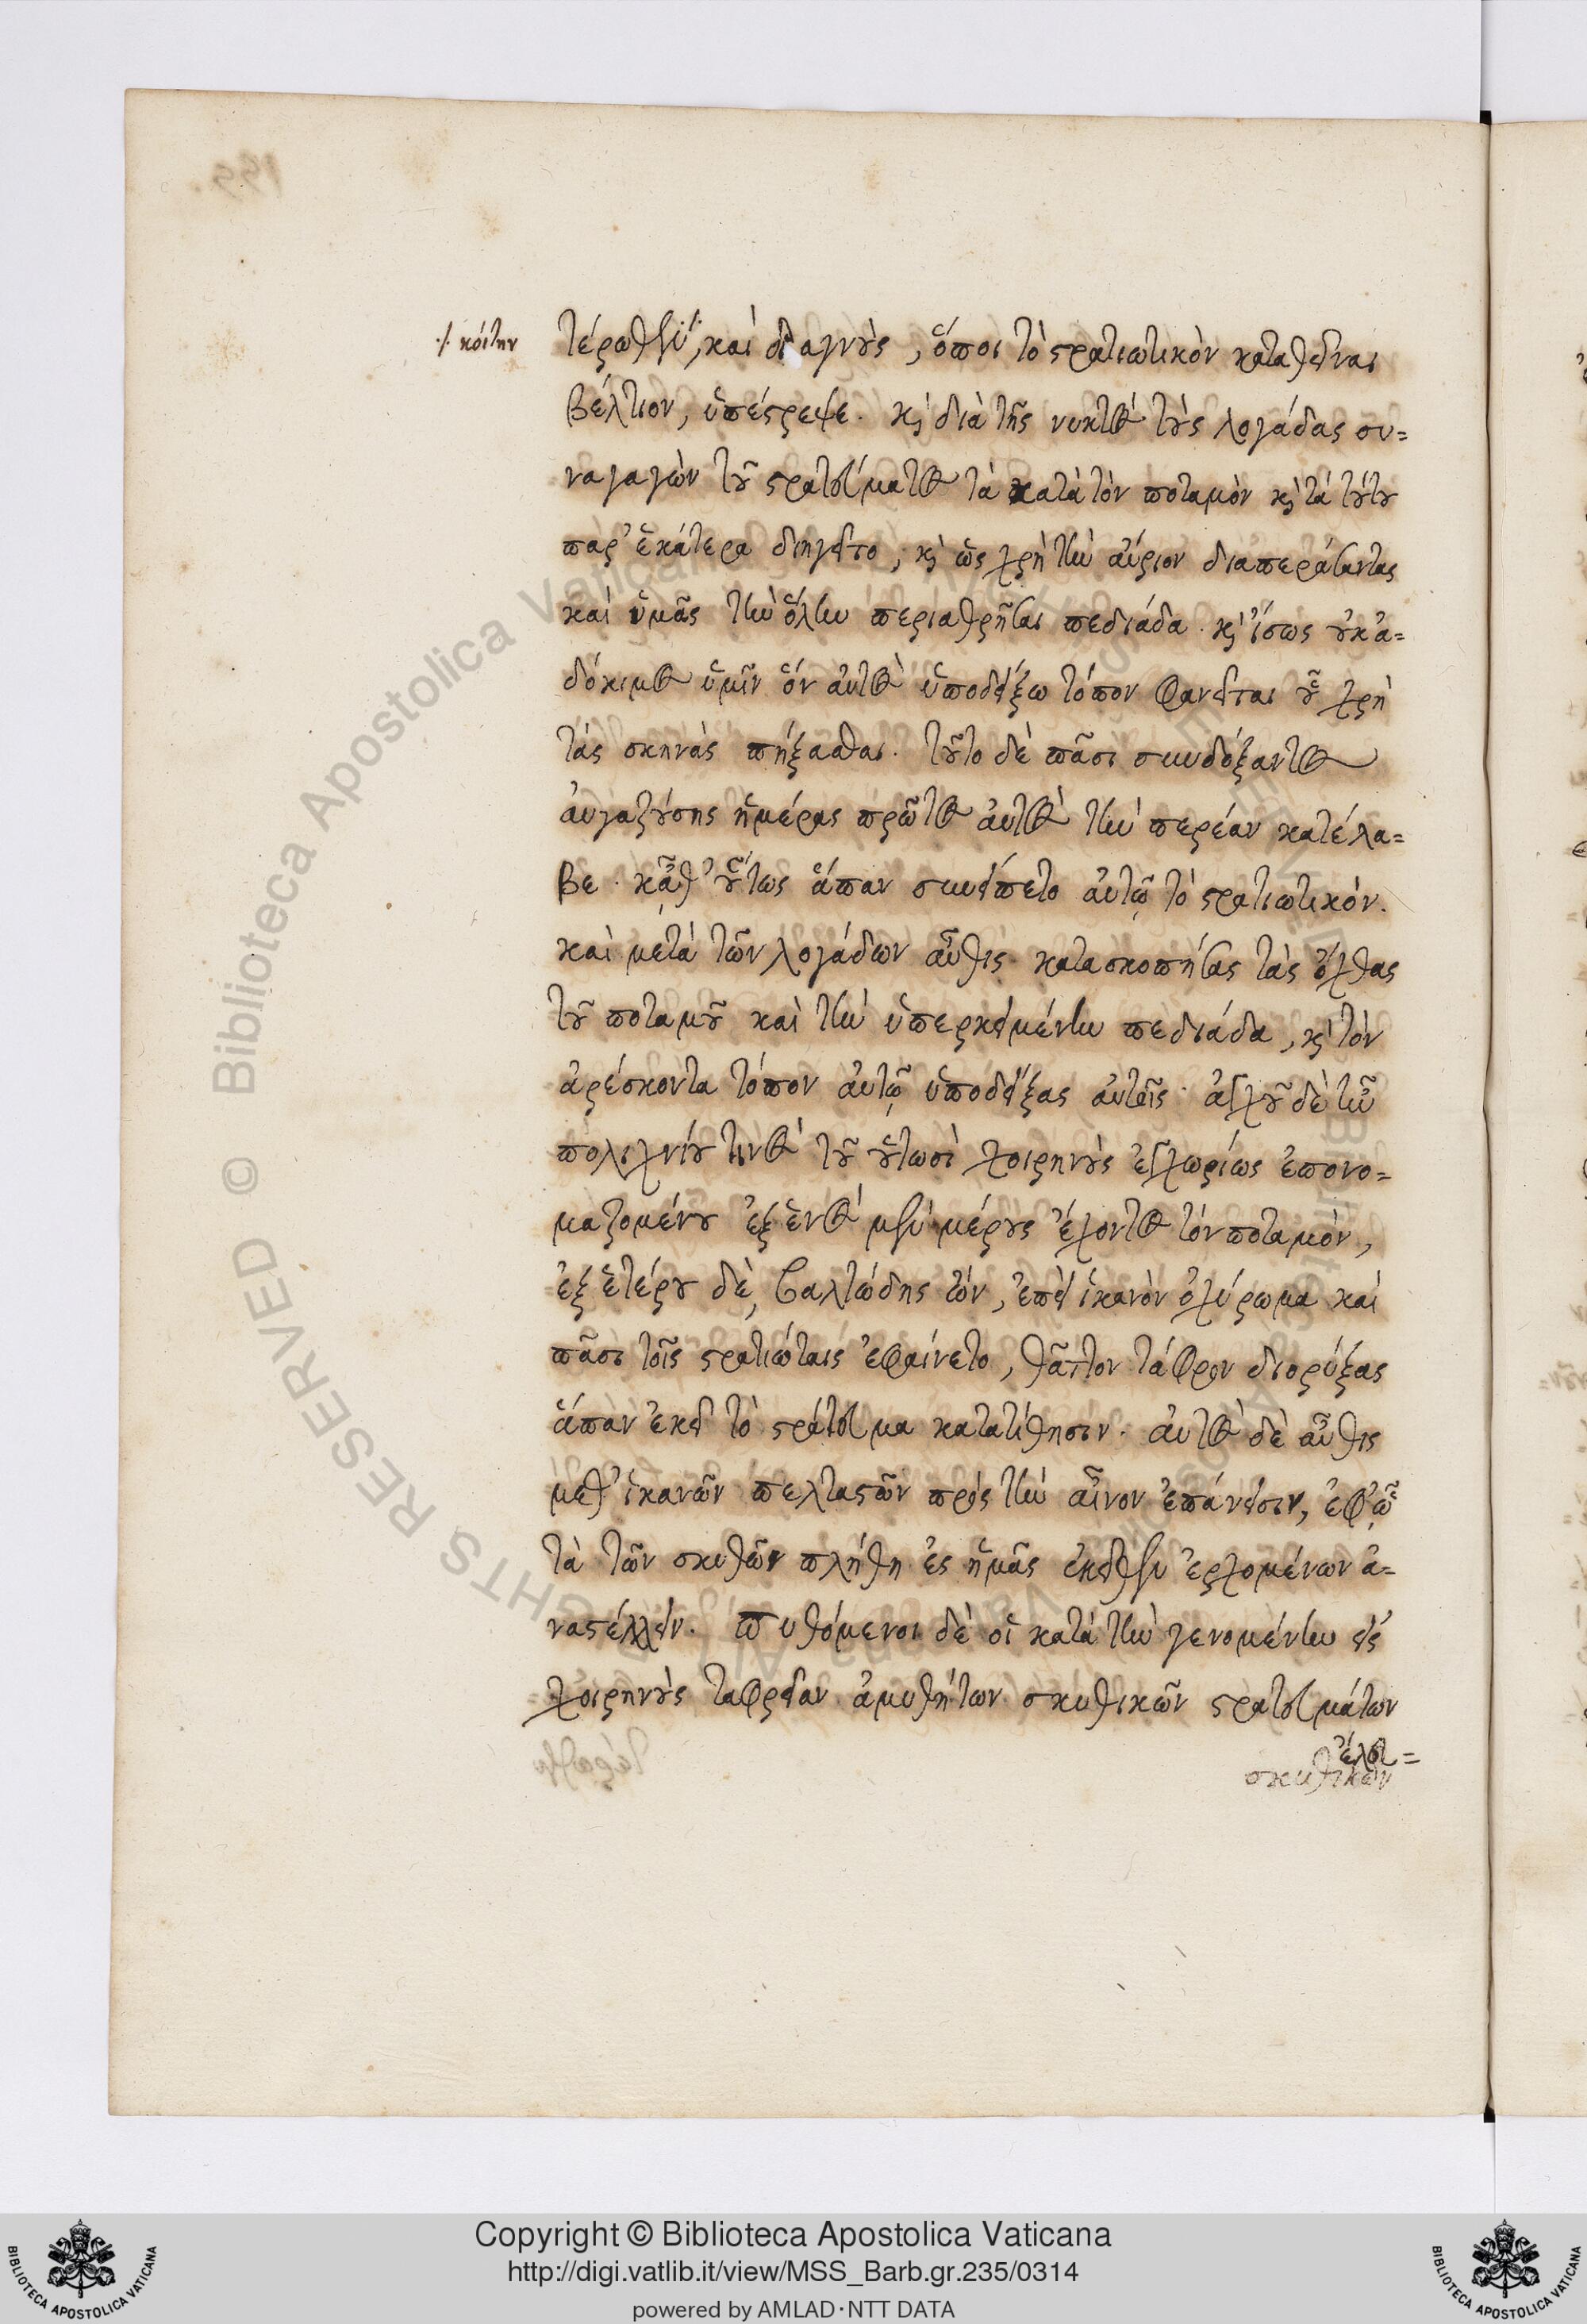 ./. κοίτην
τέρωθεν ./., καὶ διαγνοὺς, ὅποι τὸ στρατιωτικὸν καταθεῖναι
βέλτιον, ὑπέστρεψε. κὶ διὰ τῆς νυκτὸς τοὺς λογάδας συ=
ναγαγὼν τοῦ στρατεύματος τὰ κατὰ τὸν ποταμὸν κὶ τὰ τούτου
παρ' ἑκάτερα διηγεῖτο, κὶ ὡς χρὴ τὴν αὔριον διαπεράσαντας
καὶ ὑμᾶς τὴν ὅλην περιαθρῆσαι πεδιάδα. κὶ ἴσως οὐκ ἀ=
δόκιμος ὑμῖν ὅν αὐτὸς ὑποδείξω τόπον φανεῖται οὗ χρὴ
τὰς σκηνὰς πήξασθαι. τοῦτο δὲ πᾶσι συνδόξαντος
αὐγαζούσης ἡμέρας πρῶτος αὐτὸς τὴν περέαν κατέλα=
βε. κᾆθ' οὕτως ἅπαν συνείπετο αὐτῷ τὸ στρατιωτικόν.
καὶ μετὰ τῶν λογάδων αὖθις κατασκοπήσας τὰς ὄχθας
τοῦ ποταμοῦ καὶ τὴν ὑπερκειμένην πεδιάδα, κὶ τὸν
ἀρέσκοντα τόπον αὐτῷ ὑποδείξας αὐτοῖς. ἀγχοῦ δὲ ἦν
πολιχνίου τινὸς τοῦ οὑτωσὶ χοιρηνοὺς ἐγχωρίως ἐπονο=
μαζομένου ἐξ ἑνὸς μὲν μέρους ἔχοντος τὸν ποταμὸν,
ἐξ ἑτέρου δὲ, βαλτώδης ὤν, ἐπεὶ ἱκανὸν ὀχύρωμα καὶ
πᾶσι τοῖς στρατιώταις ἐφαίνετο, θᾶττον τάφρον διορύξας
ἅπαν ἐκεῖ τὸ στράτευμα κατατίθησιν. αὐτὸς δὲ αὖθις
μεθ' ἱκανῶν πελταστῶν πρὸς τὴν αἶνον ἐπάνεισιν, ἐφ' ᾧ
τὰ τῶν σκυθῶν πλήθη ἐς ἡμᾶς ἐκεῖθεν ἐρχομένων ἀ=
ναστέλλειν. πυθόμενοι δὲ οἱ κατὰ τὴν γενομένην εἰς
χοιρηνοὺς ταφρείαν ἀμυθήτων σκυθικῶν στρατευμάτων
ἔλευ=
σκυθικῶν
Copyright © Biblioteca Apostolica Vaticana
http://digi.vatlib.it/view/MSS_Barb.gr.235/0314
powered by AMLAD·NTT DATA